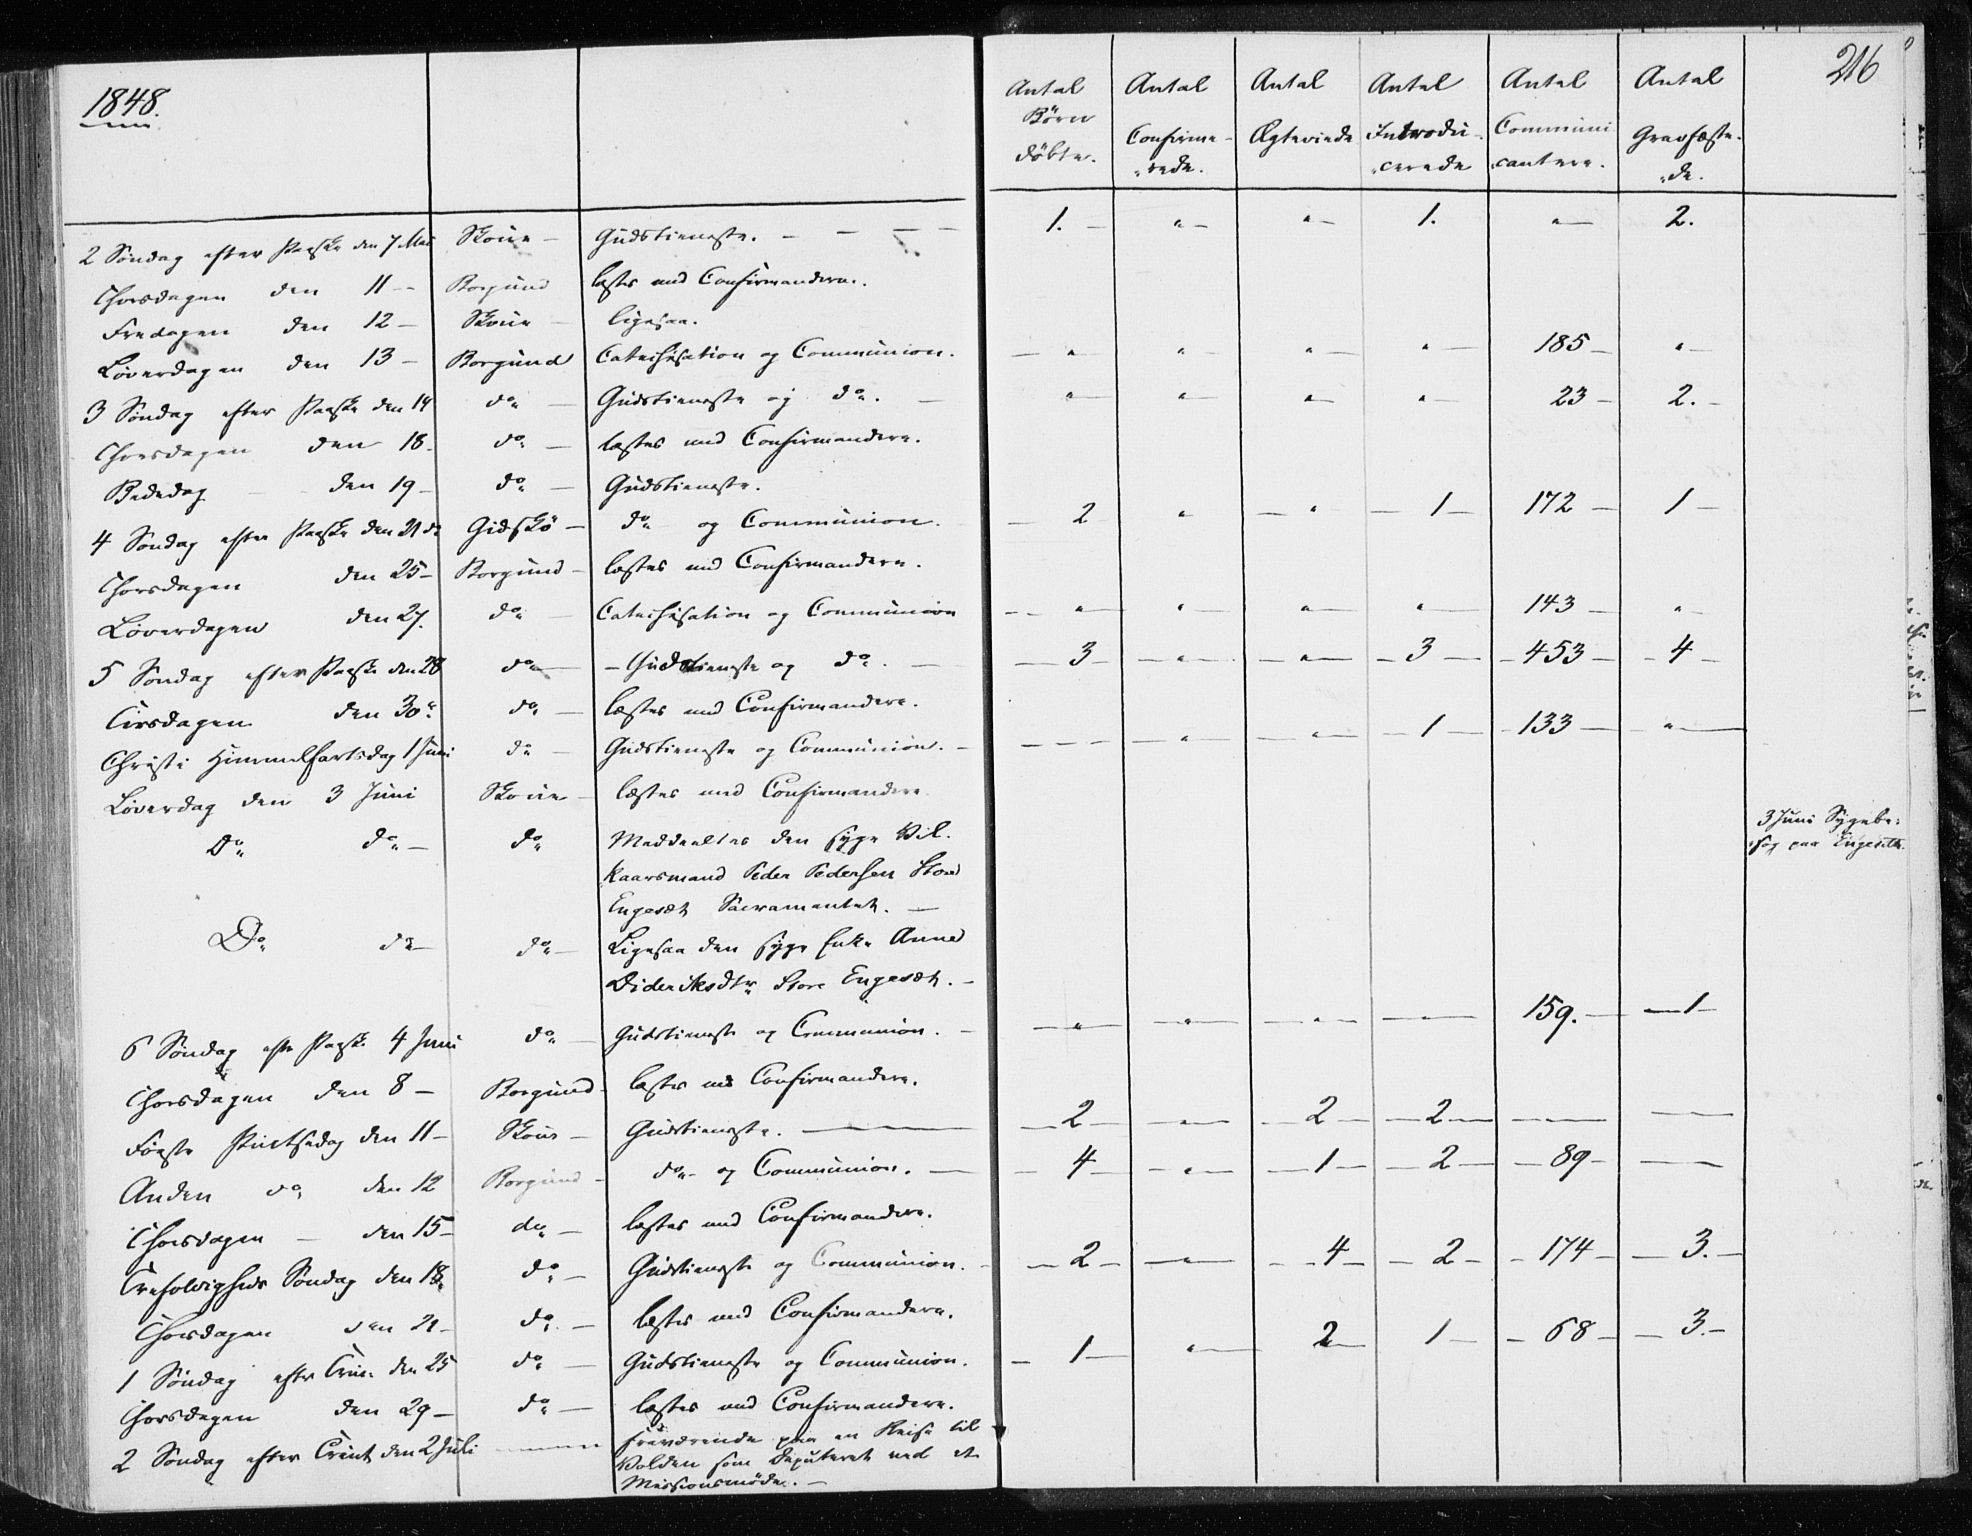 1848.
216
Antal Børn døbte.
Antal Confirme-rede.
Antal Ægteviede
Antal Introdu-cerede
Antal Communi-cantere.
Antal Gravfæste-de.
2 Søndag efter Paaske den 7 Mai Skoue – Gudstieneste. – – – – 1. – " – " – 1. " – 2.
Thorsdagen den 11 – Borgund læstes med Confirmanderne.
Fredagen den 12 – Skoue – ligesaa.
Løverdagen den 13 – Borgund Catechisation og Communion. – " " – " – " – 185 – " –
3 Søndag efter Paaske den 14 do – Gudstieneste og do. – " – " – " – " – 23 – 2. –
Thorsdagen den 18. do – læstes med Confirmanderne.
Bededag den 19 – do – Gudstieneste.
4 Søndag efter Paaske den 21 d Gidskö – do og Communion. – 2 " – " – 1 – 172 – 1 –
Thorsdagen den 25 – Borgund – læstes med Confirmanderne.
Løverdagen den 27. do – Catechisation og Communion – " – " – " – " – 143 – " –
5 Søndag efter Paaske den 28 do – – Gudstieneste og do. – – 3 – – " – – " – – 3 – – 453 – – 4 –
Tirsdagen den 30 do – læstes med Confirmanderne.
Christi Himmelfartsdag 1 Juni do – Gudstieneste og Communion. – – – – – " – – " – – 1 – 133 – " –
Løverdag den 3 Juni Skoue – læstes med Confirmandere
Do do – do Meddeeltes den syge Vil-
kaarsmand Peder Pedersen Store
Engesæt Sacramentet. –
3 Juni Sygebe:
søg paa Engeseth.
Do do – do – Ligesaa den syge Enke Anne
Dideriksdtr Store Engesæt. –
6 Søndag eft Paaske 4 Juni do – Gudstieneste og Communion. – – " – – " – – " – – 159. – – 1 –
Thorsdagen den 8 – Borgund – læstes med Confirmandere.
Første Pintsedag den 11 – Skoue – Gudstieneste. – – 2 – – " – 2 – – 2 – – –
Anden do den 12 Borgund – do – og Communion. – – 4 – – " – – 1 – – 2 – – 89 – –
Thorsdagen – den 15 – do – læstes med Confirmandere.
Trefoldigheds Søndag den 18 do – Gudstieneste og Communion. – – 2 – – – 4 – – 2 – – 174 – – 3. –
Thorsdagen den 21 – do. – læstes med Confirmandere.
1 Søndag efter Trin. den 25 do – Gudstieneste og Communion. – 1 – " – 2 – 1 – – 68 – – 3. –
Thorsdagen den 29 – do – læstes med Confirmandere.
2 Søndag efter Trint den 2 Juli – fraværende paa en Reise til
Volden som Deputeret ved et
Missionsmöde. –